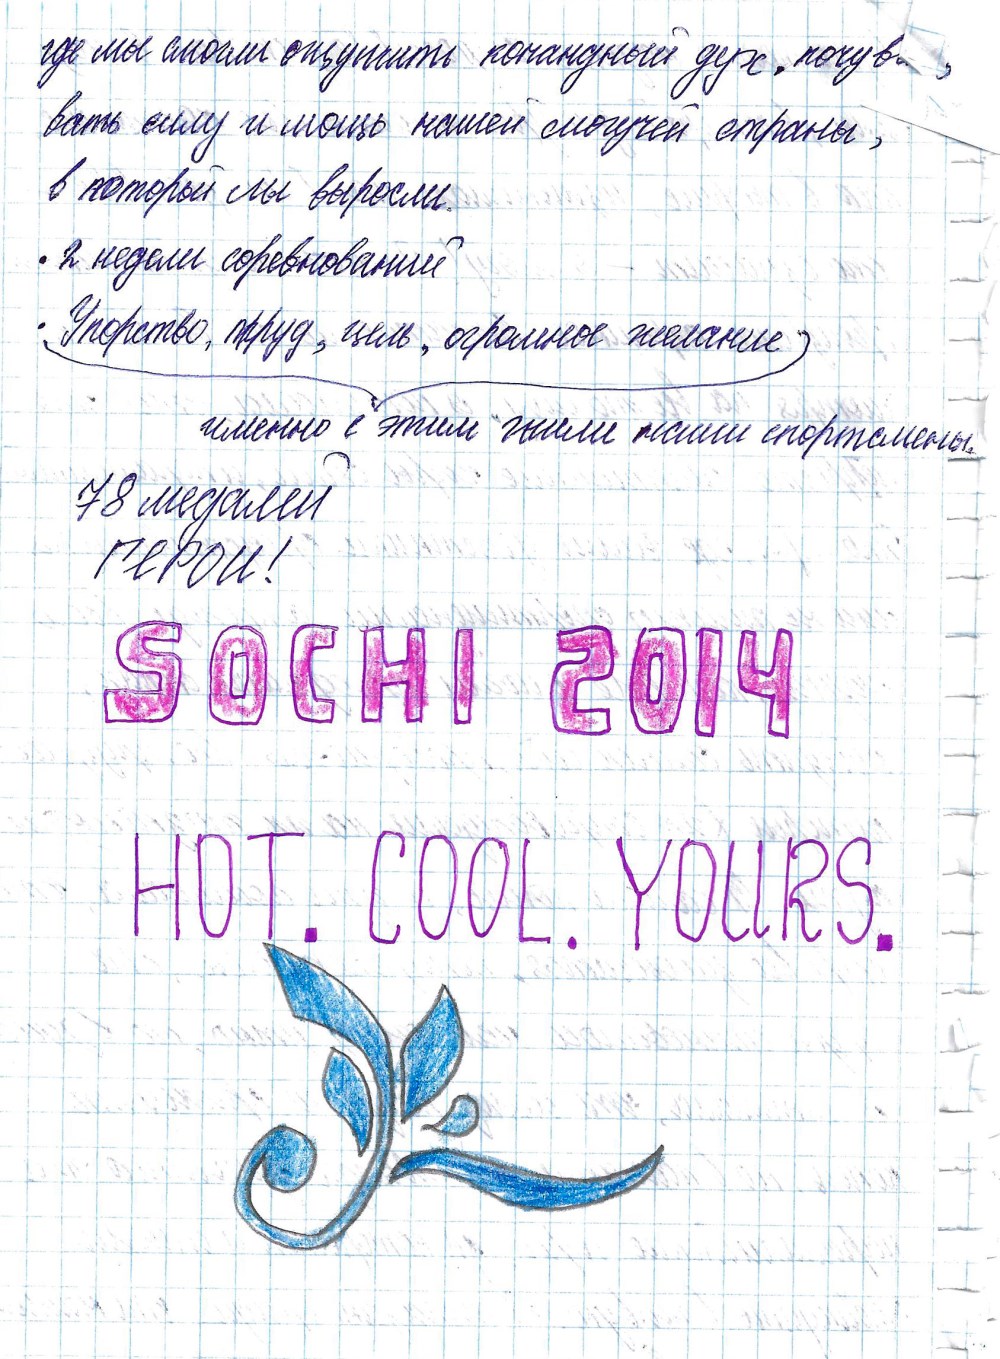 где мы смогли ощутить командный дух, почувс
вать силу и мощь нашей могучей страны,
в которой мы выросли.
• 2 недели соревнований
• Упорство, труд, цель, огромное желание
именно с этим жили наши спортсмены.
78 медалей
ГЕРОИ!
SOCHI 2014
HOT. COOL. YOURS.